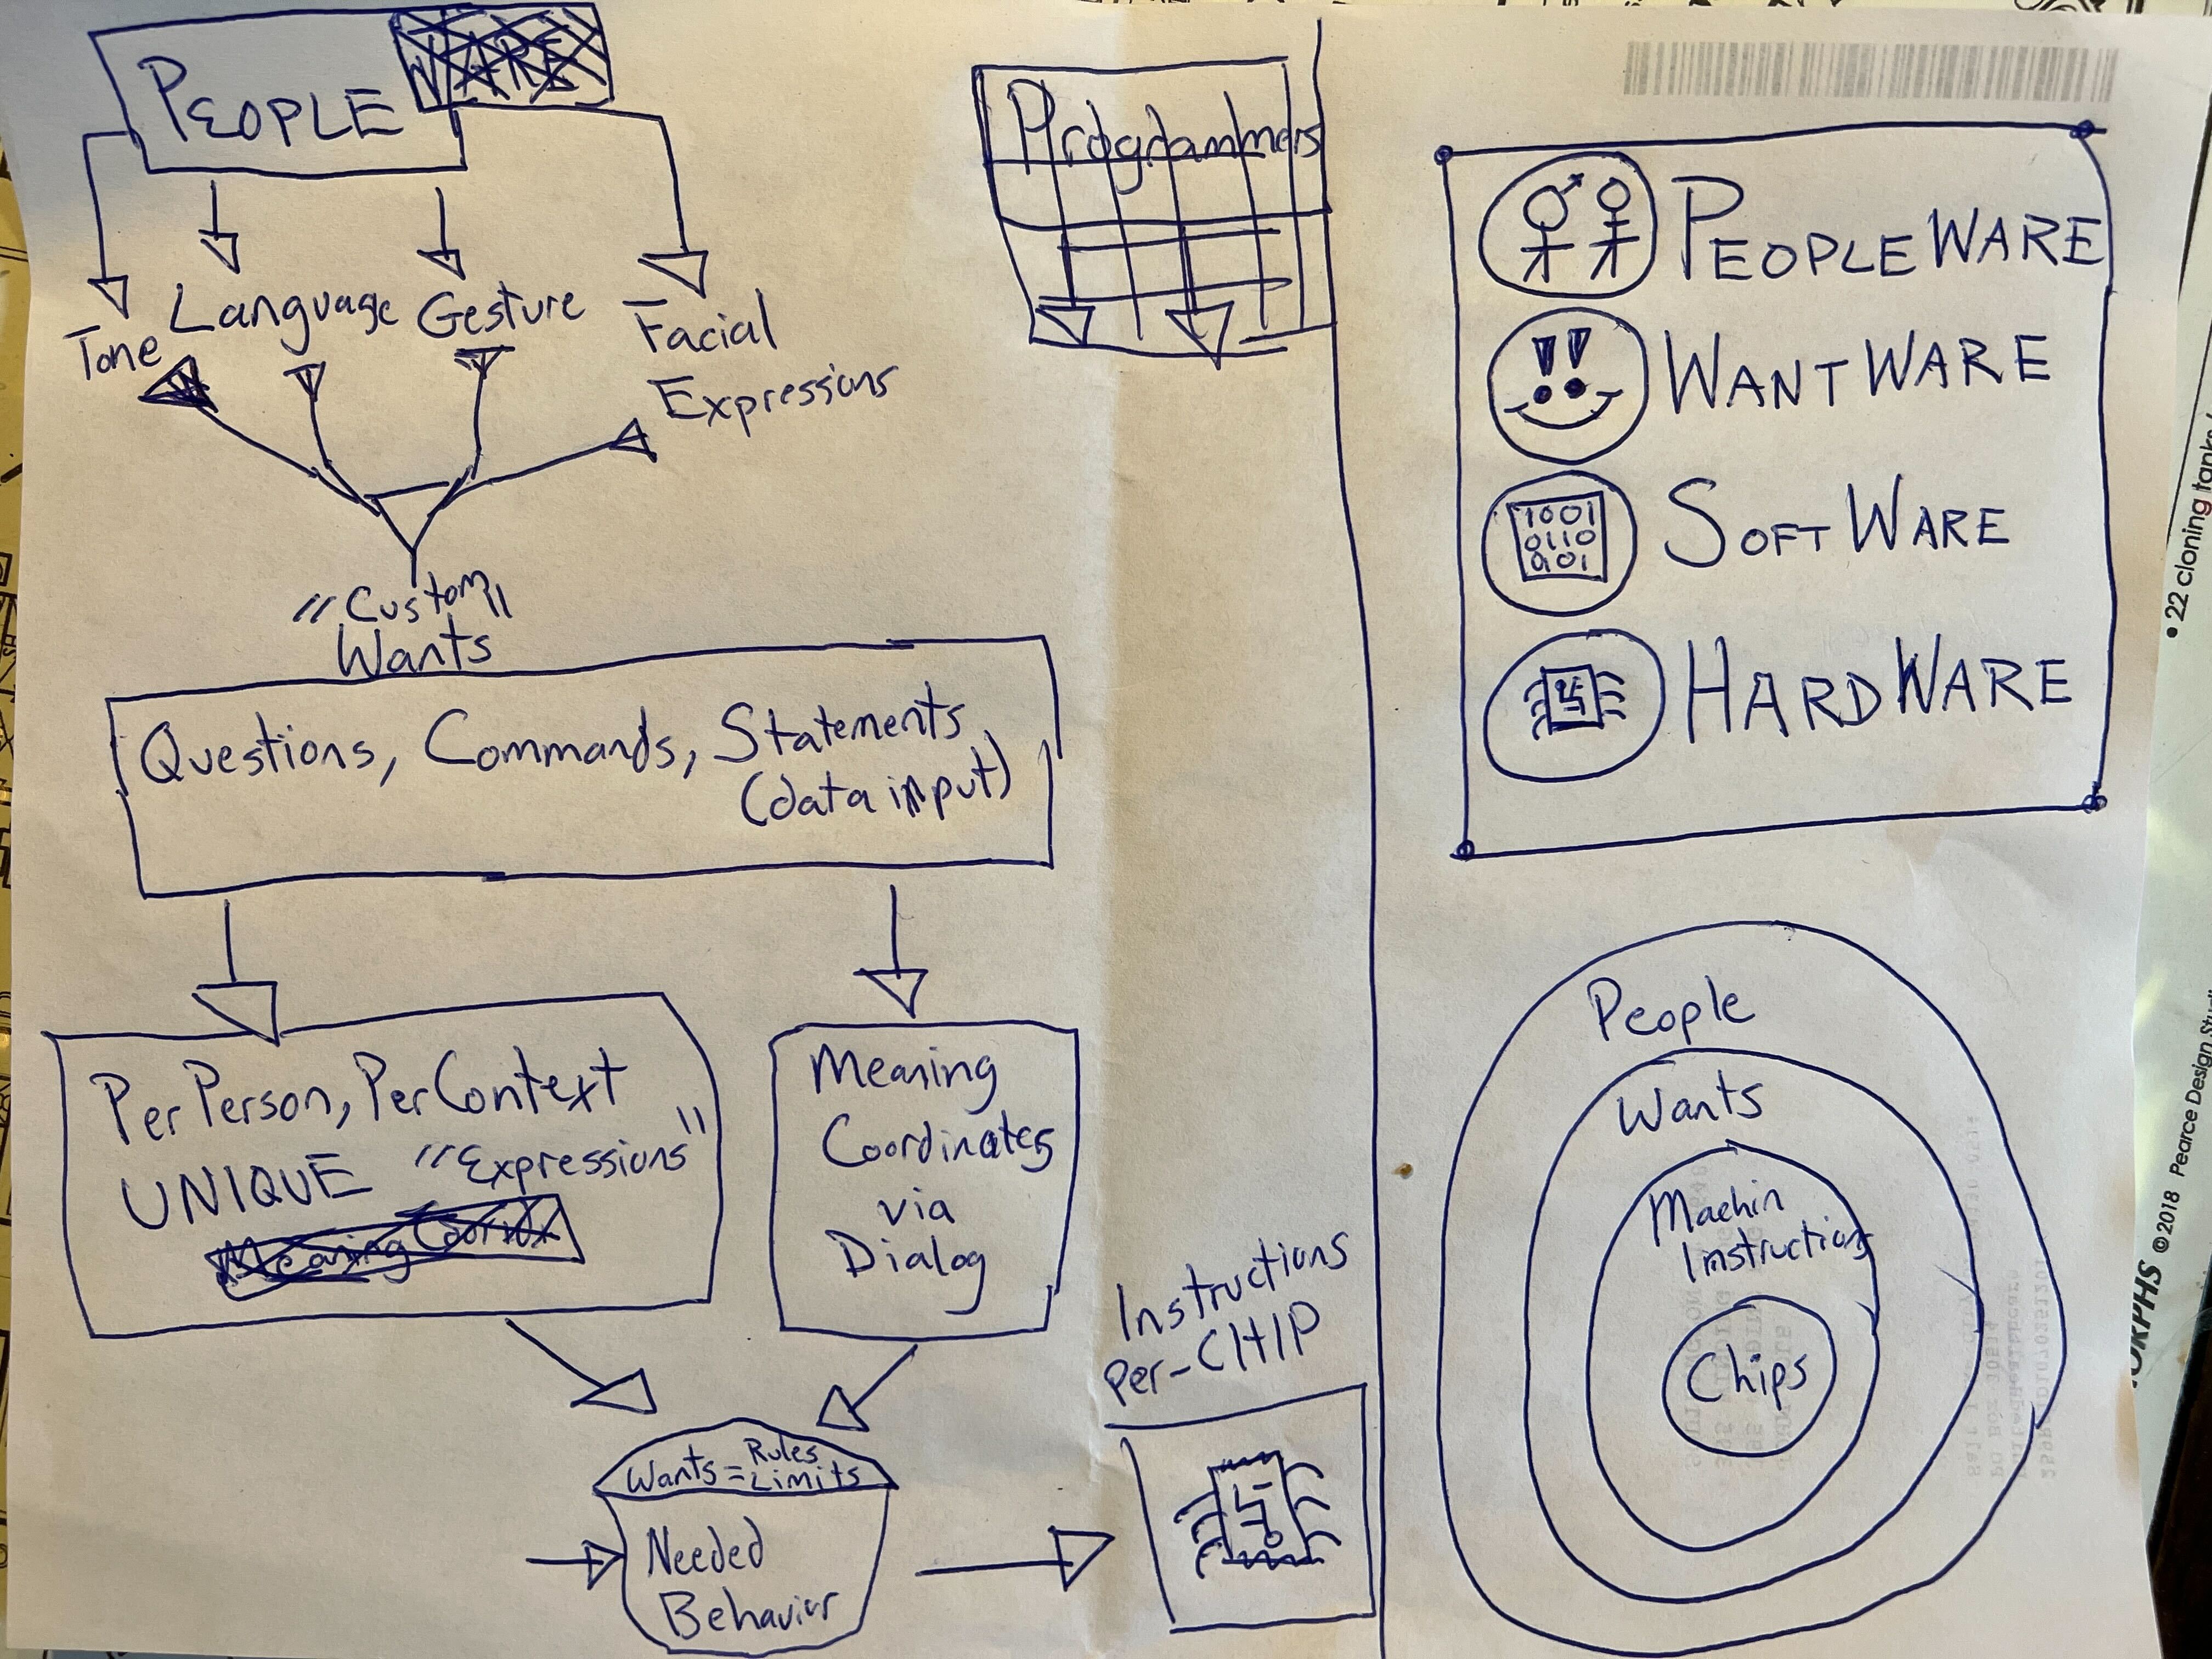 PEOPLE WARE
Tone
Language
Gesture
Facial
Expressions
"Custom"
Wants
Questions, Commands, Statements
(data input)
Per Person, Per Context
UNIQUE "Expressions"
Meaning
Meaning
Coordinates
via
Dialog
Wants = Rules
Limits
Needed
Behavior
Instructions
per-CHIP
Programmers
PEOPLEWARE
WANTWARE
1001
0110
SOFTWARE
HARDWARE
People
Wants
Machin
Instructions
Chips
• 22 cloning tanks
©2018 Pearce Design